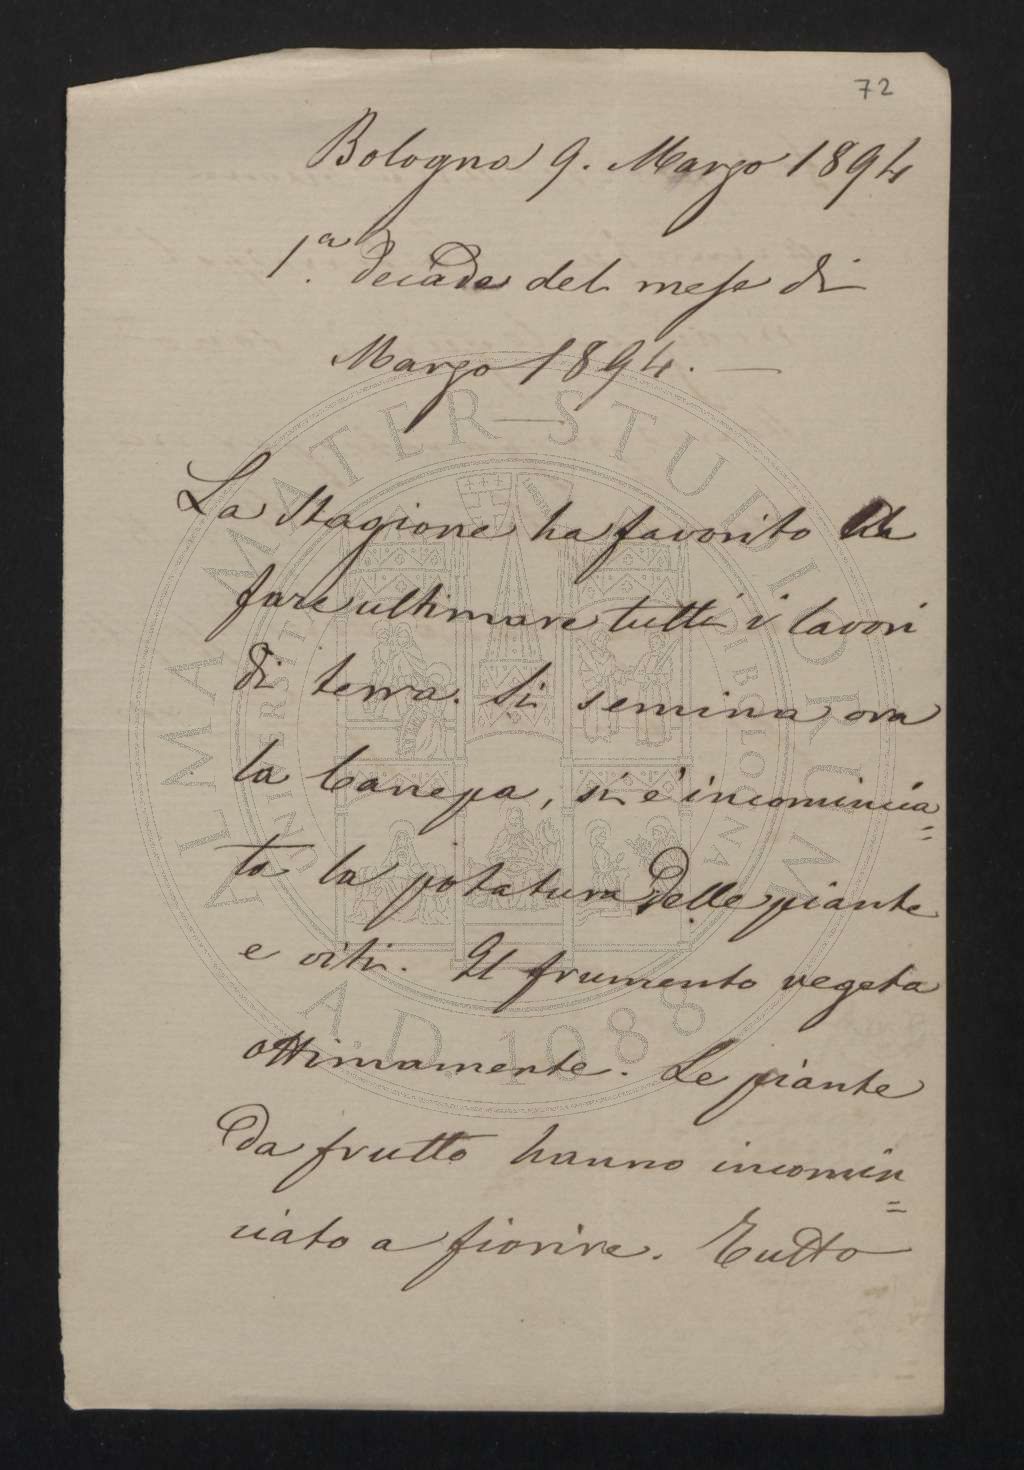 72
Bologna 9. Marzo 1894
1.a Decade del mese di
Marzo 1894. —
La Stagione ha favorito
fare ultimare tutti i lavori
di terra. Si semina ora
la Canepa, si è incomincia=
to la potatura delle piante
e viti. Il frumento vegeta
ottimamente. Le piante
da frutto hanno incomin=
ciato a fiorire. Tutto
ALMA MATER STUDIORUM
UNIVERSITÀ DI BOLOGNA
A.D. 1088